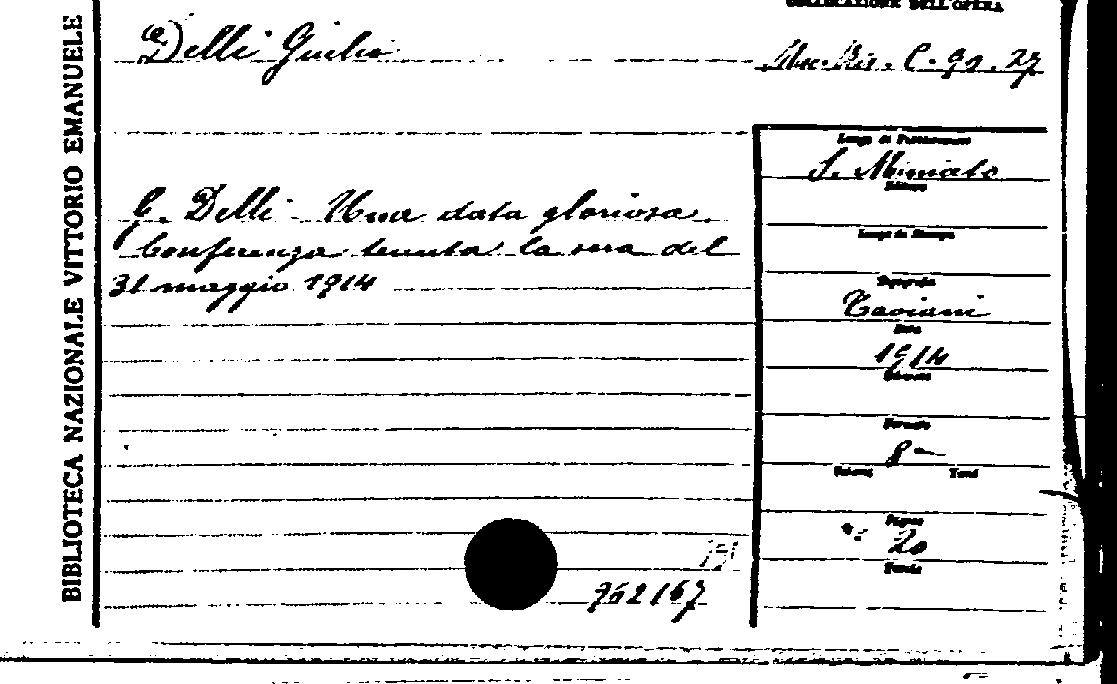 BIBLIOTECA NAZIONALE VITTORIO EMANUELE
COLLOCAZIONE DELL'OPERA
Delli Giulio
Misc. Ris. C. 90. 27
G. Delli - Una data gloriosa.
Conferenza tenuta la sera del
31 maggio 1914
Luogo di Pubblicazione
S. Miniato
Editore
Luogo di Stampa
Tipografia
Taviani
Data
1914
Edizione
Formato
8°
Volumi Tomi
Pagine
20
Tavole
762167